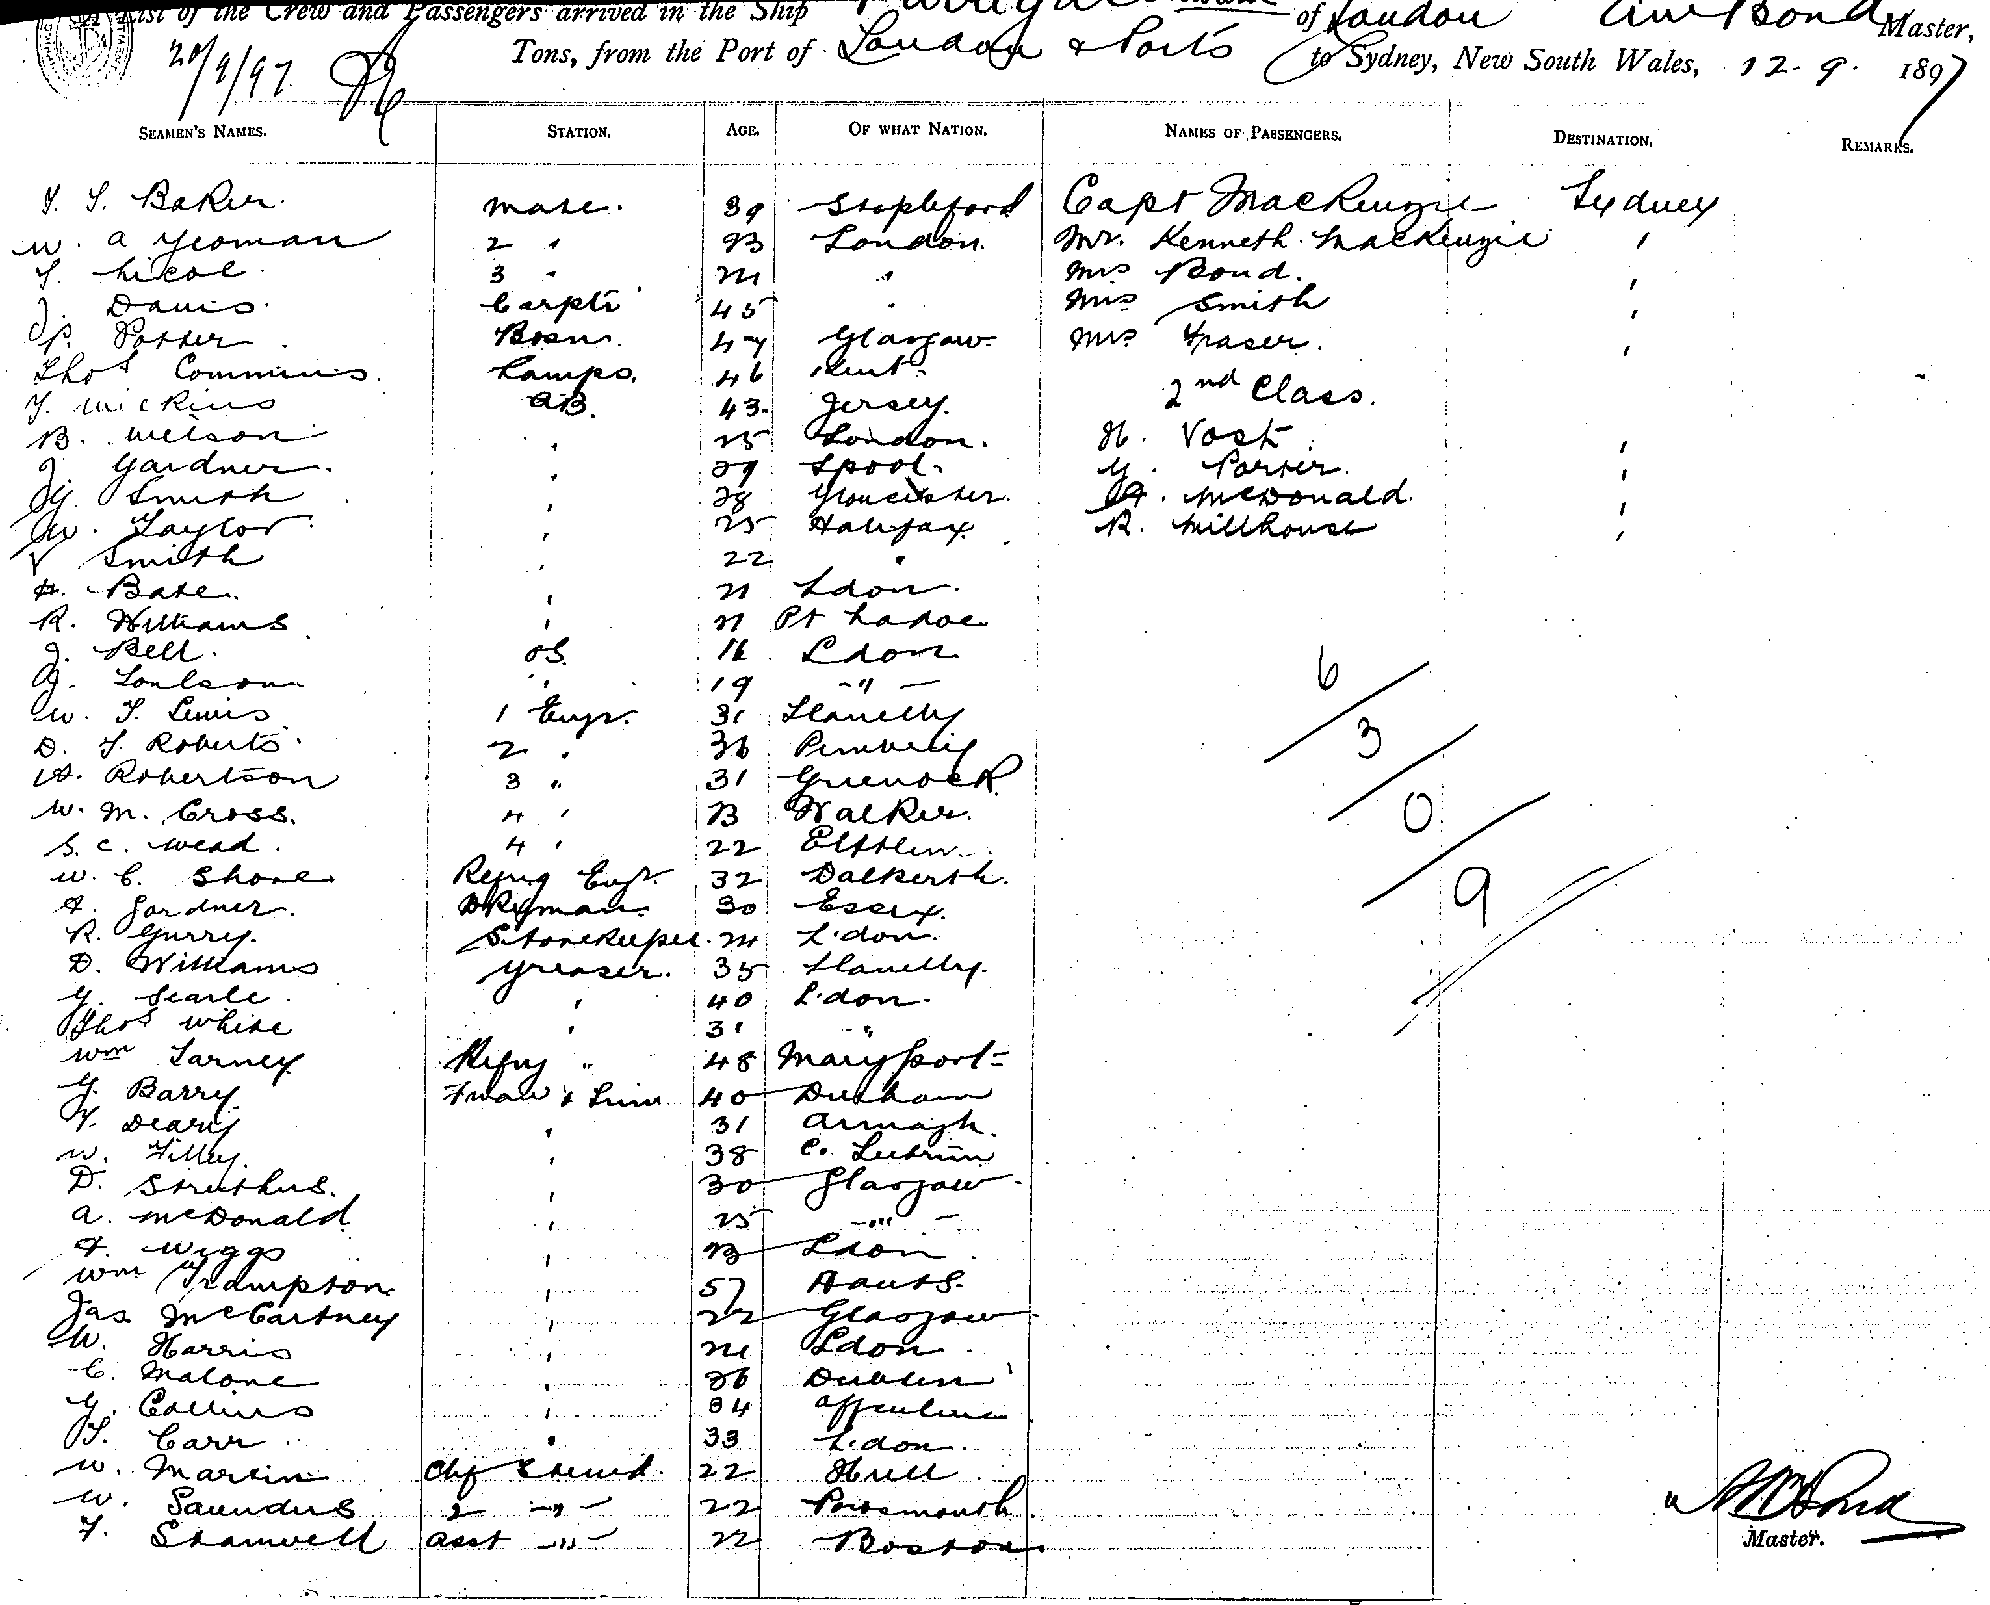 A List of the Crew and Passengers arrived in the Ship of London Bond Master,
20/9/97
Tons, from the Port of London & Ports to Sydney, New South Wales, 12-9. 1897
SEAMEN'S NAMES. STATION. AGE. OF WHAT NATION. NAMES OF PASSENGERS. DESTINATION. REMARKS.
Baker. mate. 39 Stapleford Capt MacKenzie Sydney
W. A Yeoman 2 " 23 London. Mr. Kenneth MacKenzie "
Nicol 3 " 24 " Mrs Bond. "
J. Davis. Carptr 45 " Smith "
P. Potter Bosn. 47 Glasgow Fraser. "
Thos Commins. Lamps. 46 Kent 2nd Class.
Mickins AB. 43. Jersey.
B. Wilson " 25 London. H. Vost "
J. Gardner. " 29 Lpool. G. Porter. "
G. Smith " 28 Gloucester. A. McDonald. "
W. Taylor " 25 Halifax. R. Millhouse "
Smith " 22 "
Bate. " 21 Ldon.
R. Williams " 21 Pt
J. Bell. OS. 16 Ldon
" 19 -"-
W. T. Lewis 1 Engr. 31 Llanelly
D. T. Roberts 2 " 36
A. Robertson 3 " 31 Greenock
W. M. Cross. 4 " 23 Walker.
S. C. Mead. 4 " 22
W. C. Shore Refrig Engr. 32 Dalkerth.
Gardner. Dkyman. 30 Essex.
R. Gurry. Storekeeper. 24 L'don.
D. Williams Greaser. 35 Llanelly.
G. Searle. " 40 L'don.
Thos White " 31 "
Wm Tarney Refrg " 48 Maryport
G. Barry. Fman & Trim 40 Durham
Deary " 31 Armagh.
W. Tilley. " 38 C. Leitrim
D. Struthers. " 30 Glasgow
A. McDonald. " 25 -"-
Wiggs " 23 Ldon.
Wm Frampton. " 57 Hants.
Jas McCartney " 22 Glasgow
W. Harris " 24 Ldon.
C. Malone " 26 Dublin
G. Collins " 34
T. Carr " 33 L.don.
W. Martin Chf Steward. 22 Hull
W. Saunders 2 -"- 22 Portsmouth.
F. Stanwell Asst -"- 22 Boston
6/3/0/9
Bond
Master.